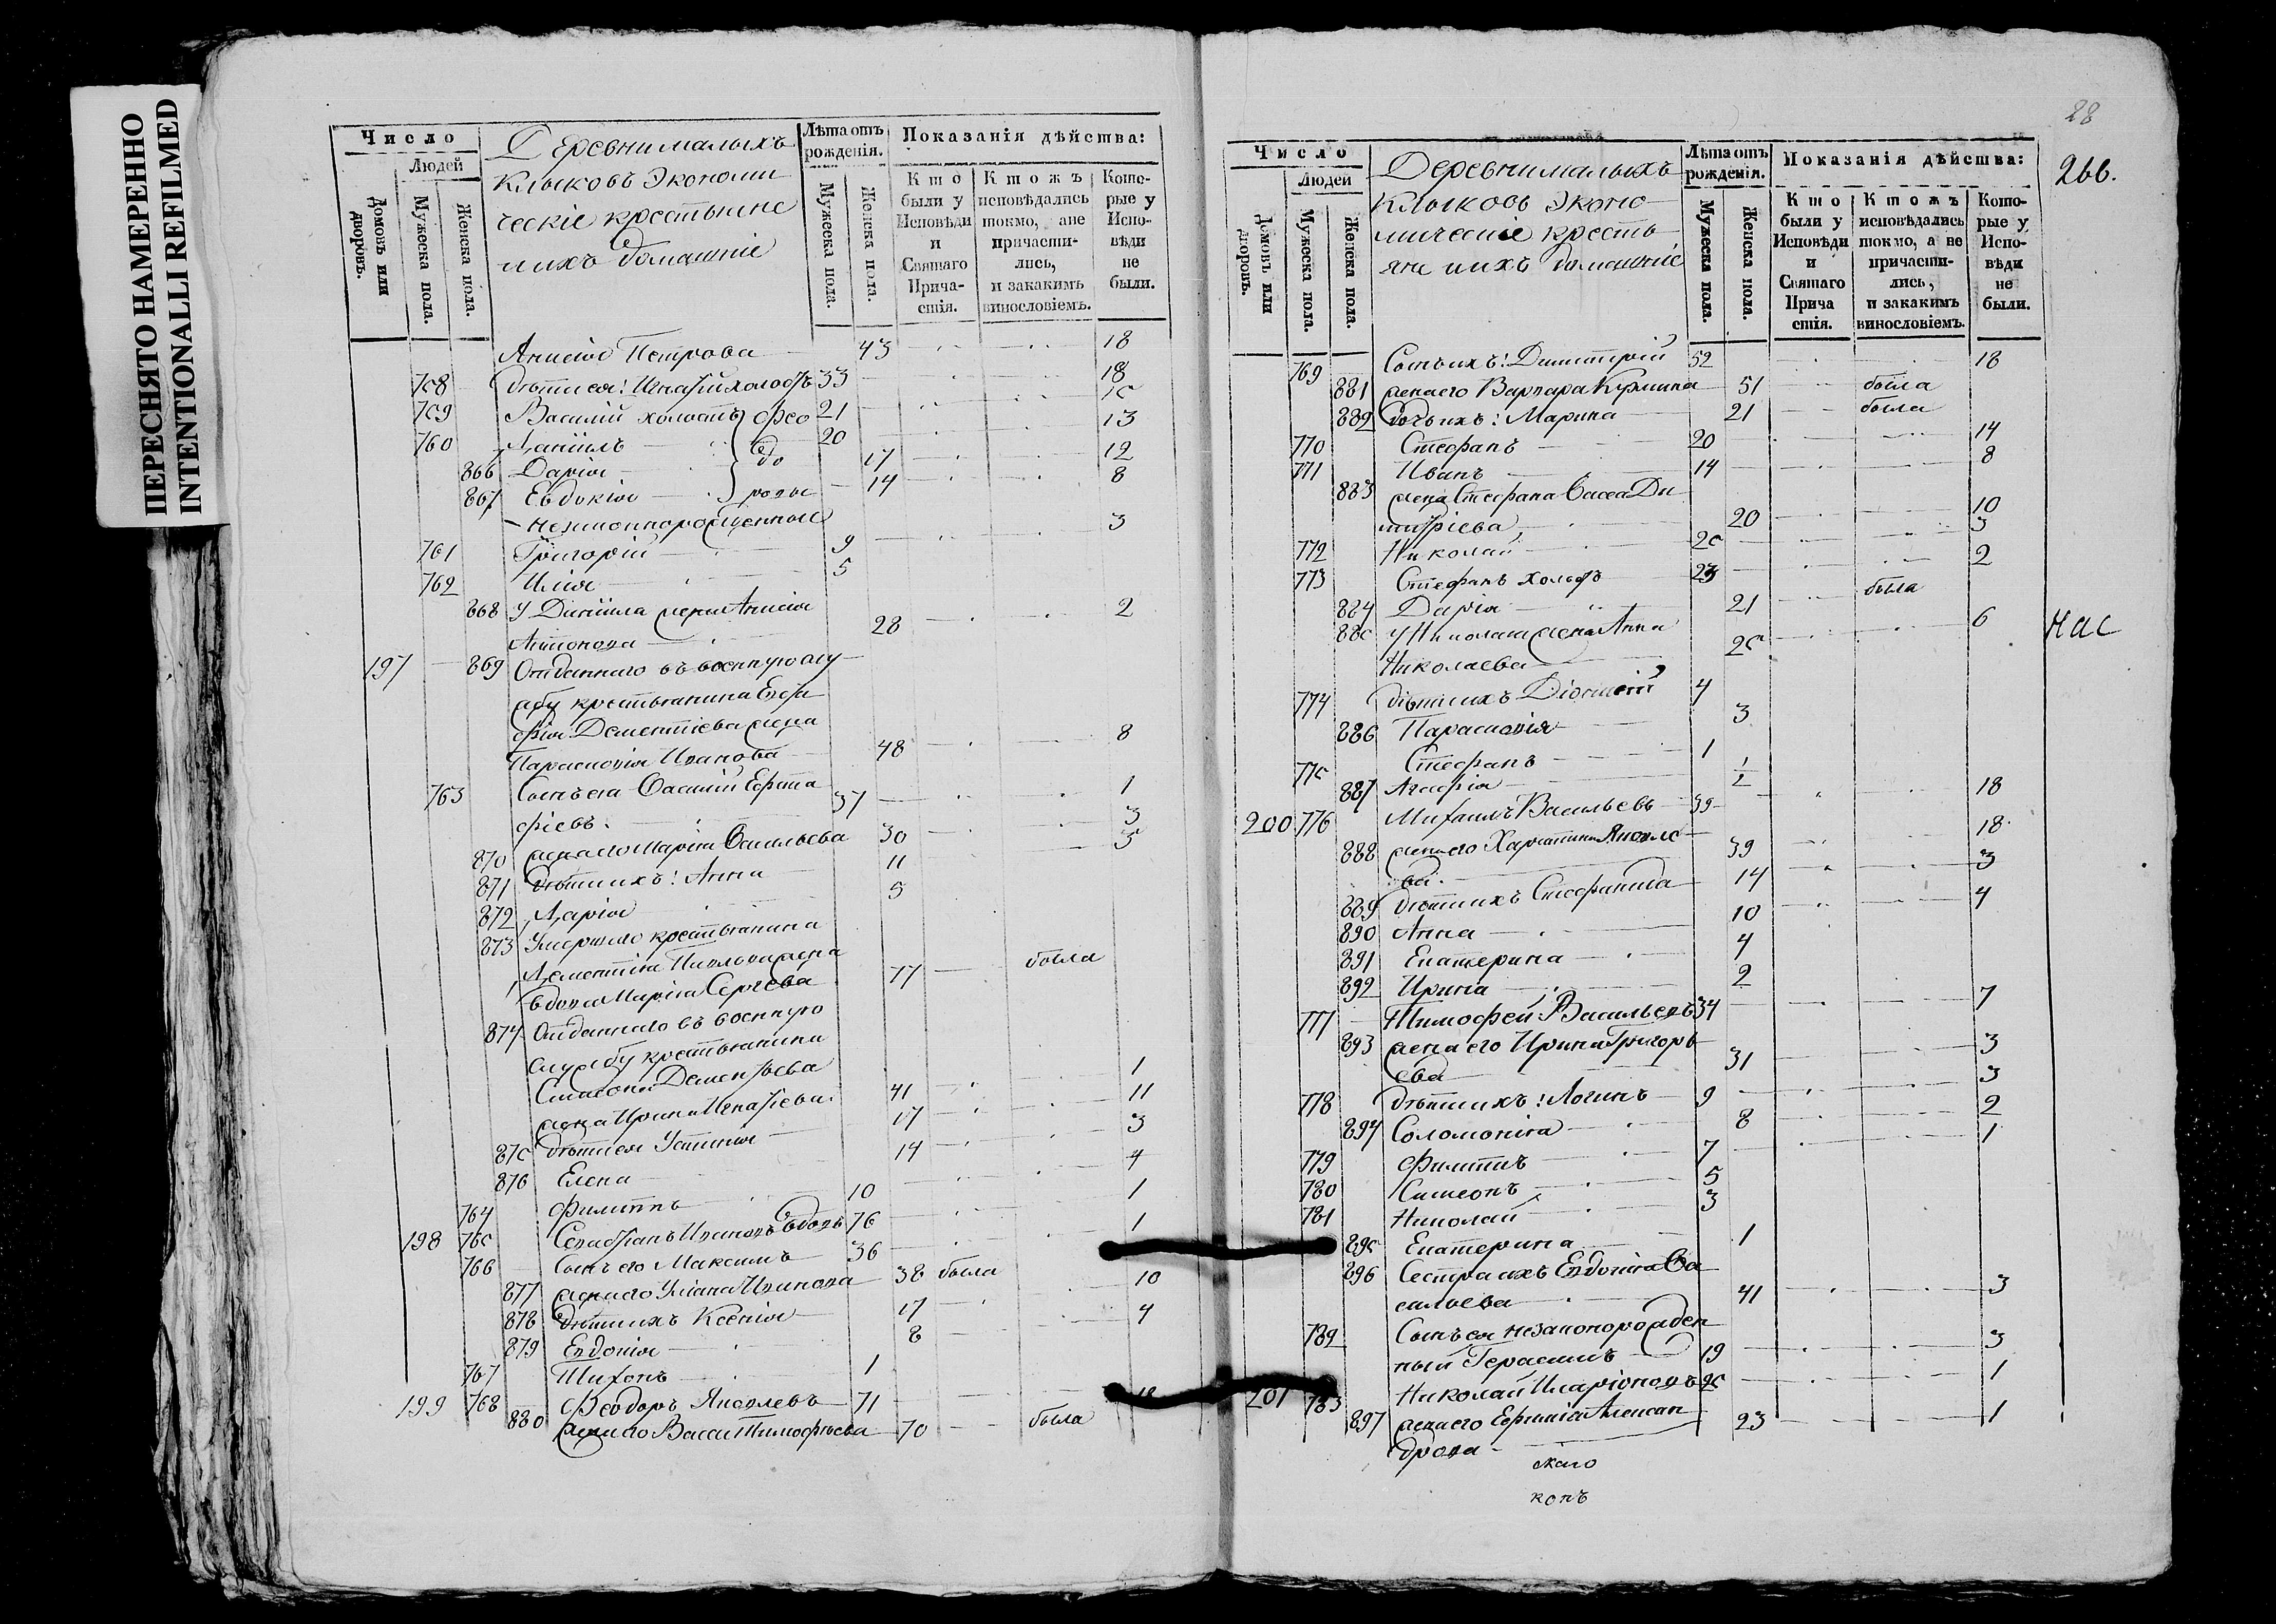 ПЕРЕСНЯТО НАМЕРЕННО
INTENTIONALLI REFILMED
Число
Людей
Домовъ или дворовъ.
Мужеска пола.
Женска пола.
Деревни малыхъ
Клыковъ Экономи
ческіе крестьяне
иихъ домашніе
Лѣта отъ рожденія.
Мужеска пола.
Женска пола.
Показанія дѣйства:
Кто были у Исповѣди и Святаго Прича-стія.
Ктожъ исповѣдались токмо, ане причасти-лись, и закакимъ винословіемъ.
Кото-рые у Испо-вѣди не были.
Анисія Петрова 43 18
758 дѣтиея: Игнатій холостъ 33 18
759 Василій холостъ 21 15
760 Даніилъ 20 13
866 Дарія 17 12
867 Евдокія 14 8
3
761 Григорій 9
762 Илія 5
868 У Даніила жена Анисія
Антонова 28 2
197 869 Отданнаго въ военную слу
жбу крестьянина Евста
фія Дементіева жена
Парасковія Иванова 48 8
763 Сынъ ея Василій Евста
фіевъ 37 1
870 жена его Марія Васильева 30 3
871 дѣтиихъ: Анна 11 3
872 Дарія 5
873 Умершаго крестьянина
Дементія жена
вдова Марія Сергѣева 77 была
874 Отданнаго въ военную
службу крестьянина
Симеона Дементьева
жена Ирина Игнатіева 41 1
875 дѣтиея Устинія 17 11
876 Елена 14 3
764 Филиппъ 10 4
198 765 Ивановъ вдовъ 76 1
766 Сынъ его Максимъ 36 1
877 жена его Уліана Иванова 38 была
878 дѣтиихъ Ксенія 17 10
879 Евдокія 8 4
767 Тихонъ 1
199 768 Феодоръ Яковлевъ 71 18
880 жена его Васса Тимофѣева 70 была
28
266.
Число
Людей
Домовъ или дворовъ.
Мужеска пола.
Женска пола.
Деревни малыхъ
Клыковъ Эконо-
мическіе кресть-
яне иихъ домашніе
Лѣта отъ рожденія.
Мужеска пола.
Женска пола.
Показанія дѣйства:
Кто были у Исповѣди и Святаго Прича стія.
Ктожъ исповѣдались токмо, а не причасти-лись, и закакимъ винословіемъ.
Кото-рые у Испо-вѣди не были.
769 Сынъихъ: Димитрій 52 18
881 жена его Варвара Кузмина 51 была
882 дочьихъ: Марина 21 была
770 Стефанъ 20 14
771 Иванъ 14 8
883 жена Стефана Васса Ди
митріева 20 10
772 Николай 25 3
773 Стефанъ холостъ 23 2
884 Дарія 21 была
885 У Николая жена Анна
Николаева 25 6
774 дѣтиихъ 4
886 Парасковія 3
775 Стефанъ 1
887 Агафія ½
200 776 Михаилъ Васильевъ 39 18
888 жена его Харитина Яковле
ва 39 18
889 дѣтиихъ Стефанида 14 3
890 Анна 10 4
891 Екатерина 4
892 Ирина 2
777 Тимофей Васильевъ 34 7
893 жена его Ирина Григорь
ева 31 3
778 дѣтиихъ: Логинъ 9 3
894 Соломонія 8 2
779 Филиппъ 7 1
780 Симеонъ 5
781 Николай 3
895 Екатерина 1
896 Сестра ихъ Евдокія Ва
сильева 41 3
782 Сынъ ея незаконорожден
ный Герасимъ 19 3
201 783 Николай Иларіоновъ 25 1
897 жена его Евфимія Алексан
дрова 23 1